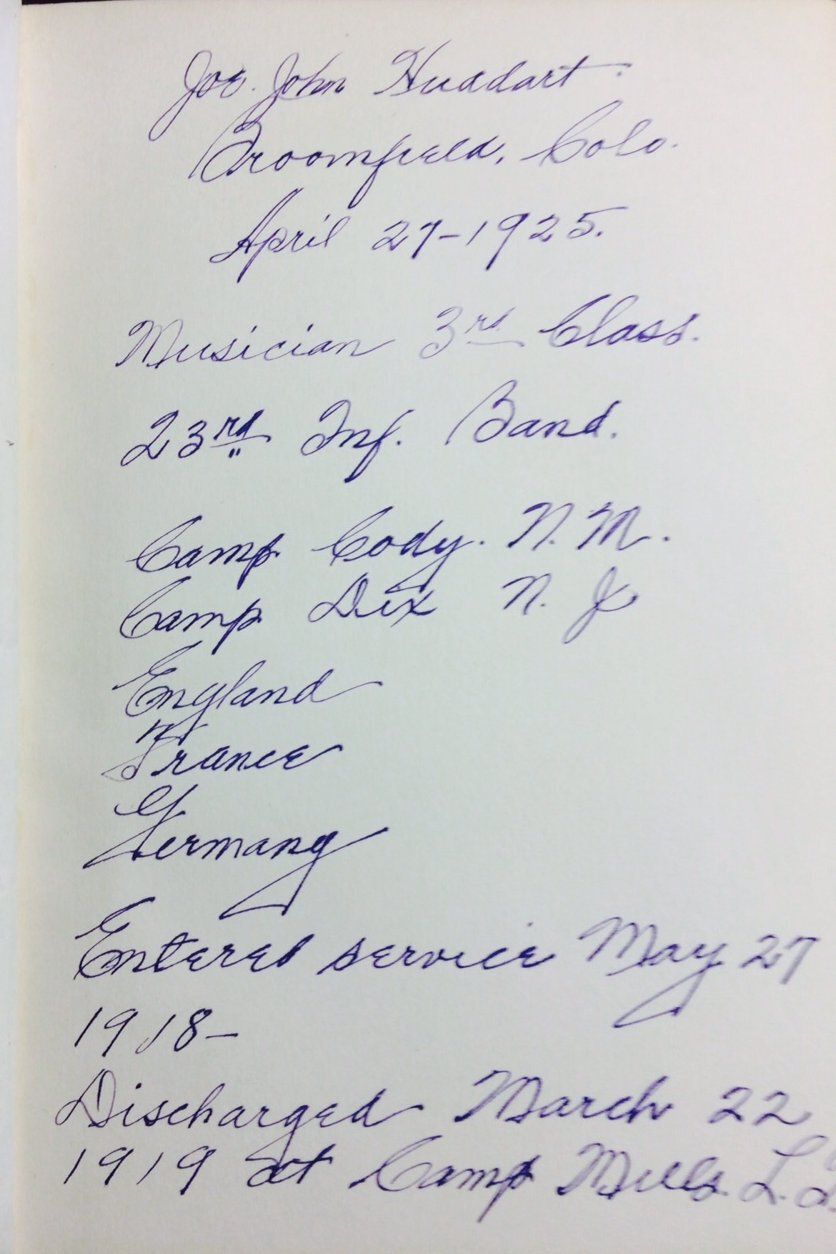 Joe. John Huddart.
Broomfield, Colo.
April 27-1925.
Musician 3rd Class.
23rd Inf. Band.
Camp Cody. N. M.
Camp Dix N. J
England
France
Germany
Entered service May 27
1918-
Discharged March 22
1919 at Camp Mills. L.